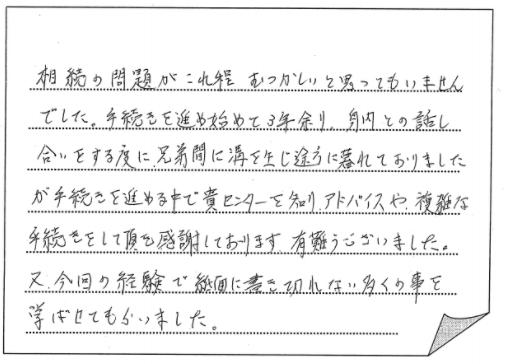 相続の問題がこれ程むつかしいと思ってもいません
でした。手続きを進め始めて3年余り、身内との話し
合いをする度に、兄弟間に溝を生じ途方に暮れておりました
が手続きを進める中で貴センターを知り、アドバイスや、複雑な
手続きをして頂き感謝しております。有難うございました。
又、今回の経験で紙面に書き切れない多くの事を
学ばせてもらいました。